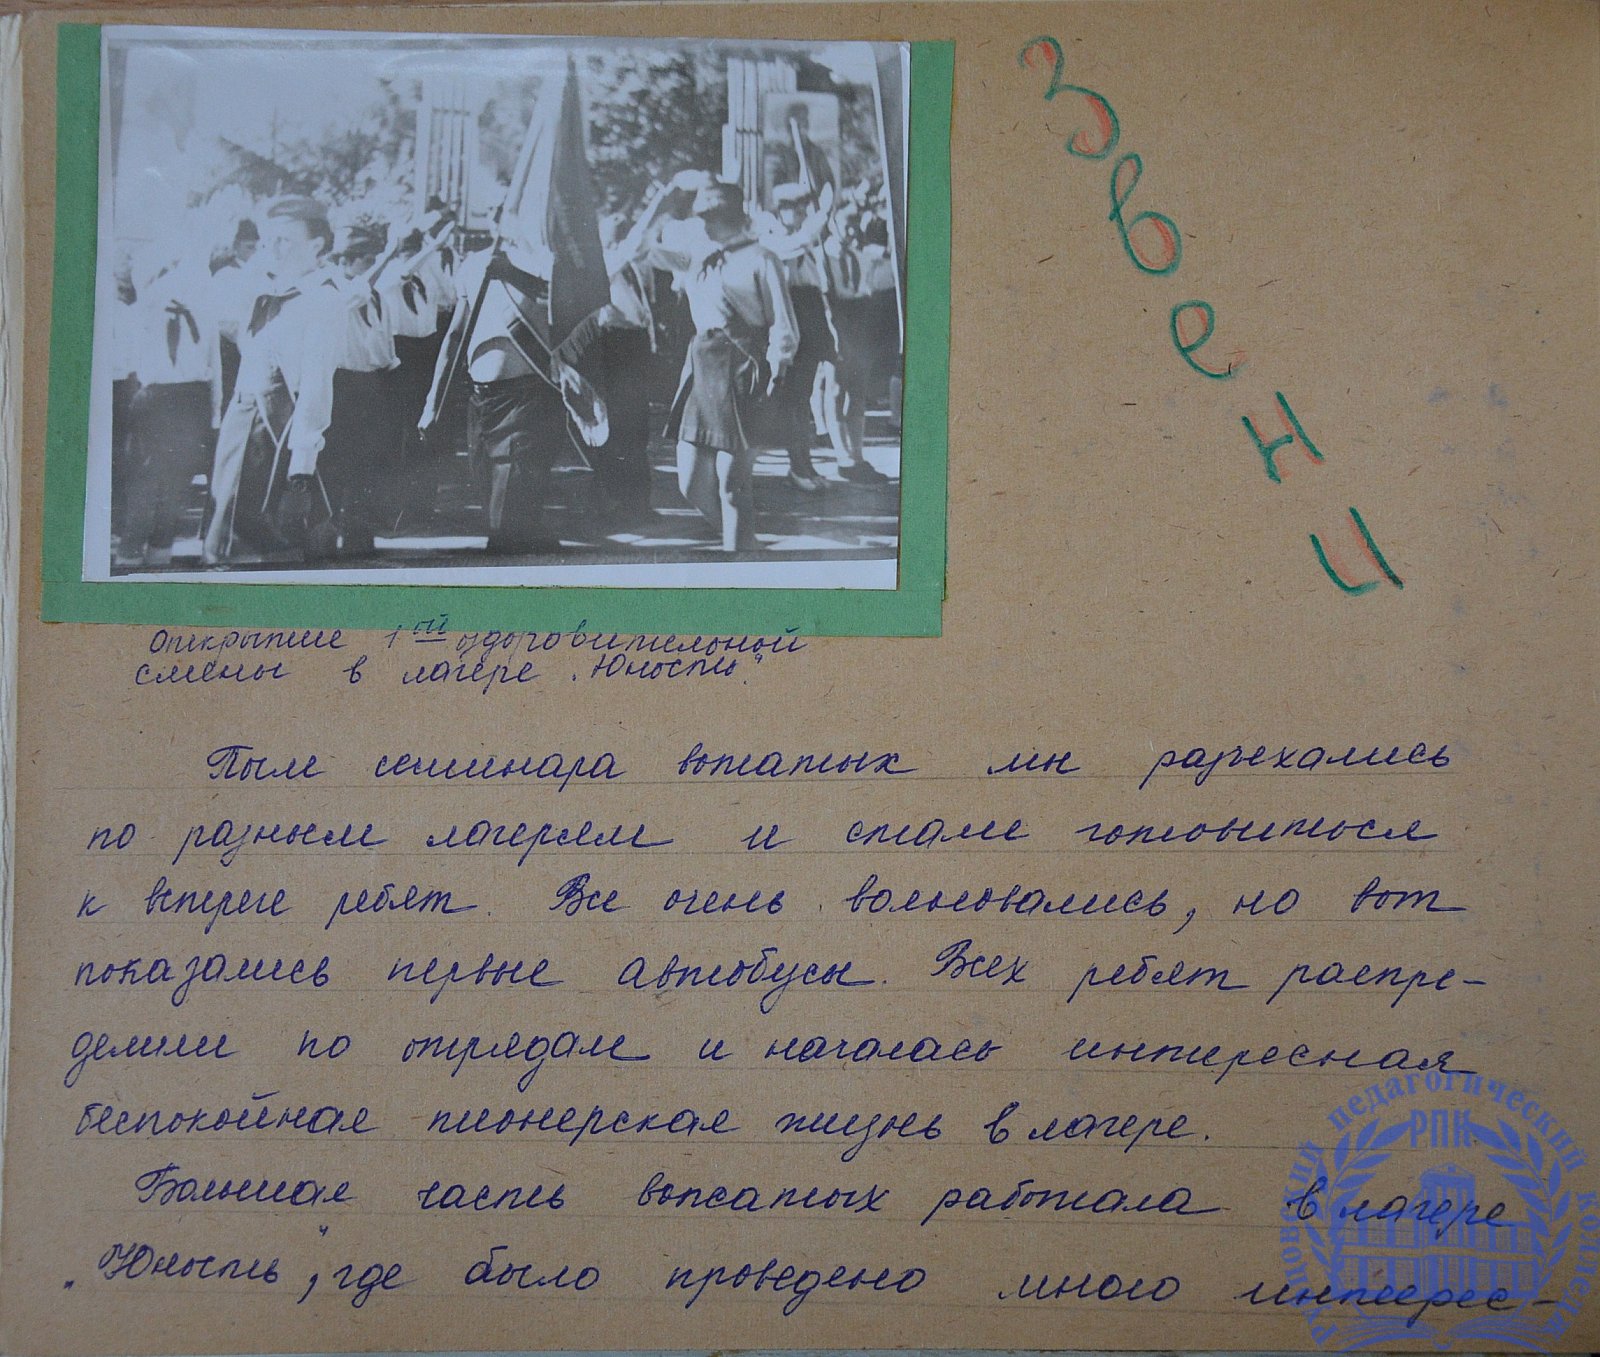 Звени
Открытие 1ой оздоровительной
смены в лагере „Юность".
После семинара вожатых мы разъехались
по разным лагерям и стали готовиться
к встрече ребят. Все очень волновались, но вот
показались первые автобусы. Всех ребят распре-
делили по отрядам и началась интересная
беспокойная пионерская жизнь в лагере.
Большая часть вожатых работала в лагере
„Юность", где было проведено много интерес-
Рубцовский педагогический колледж
РПК